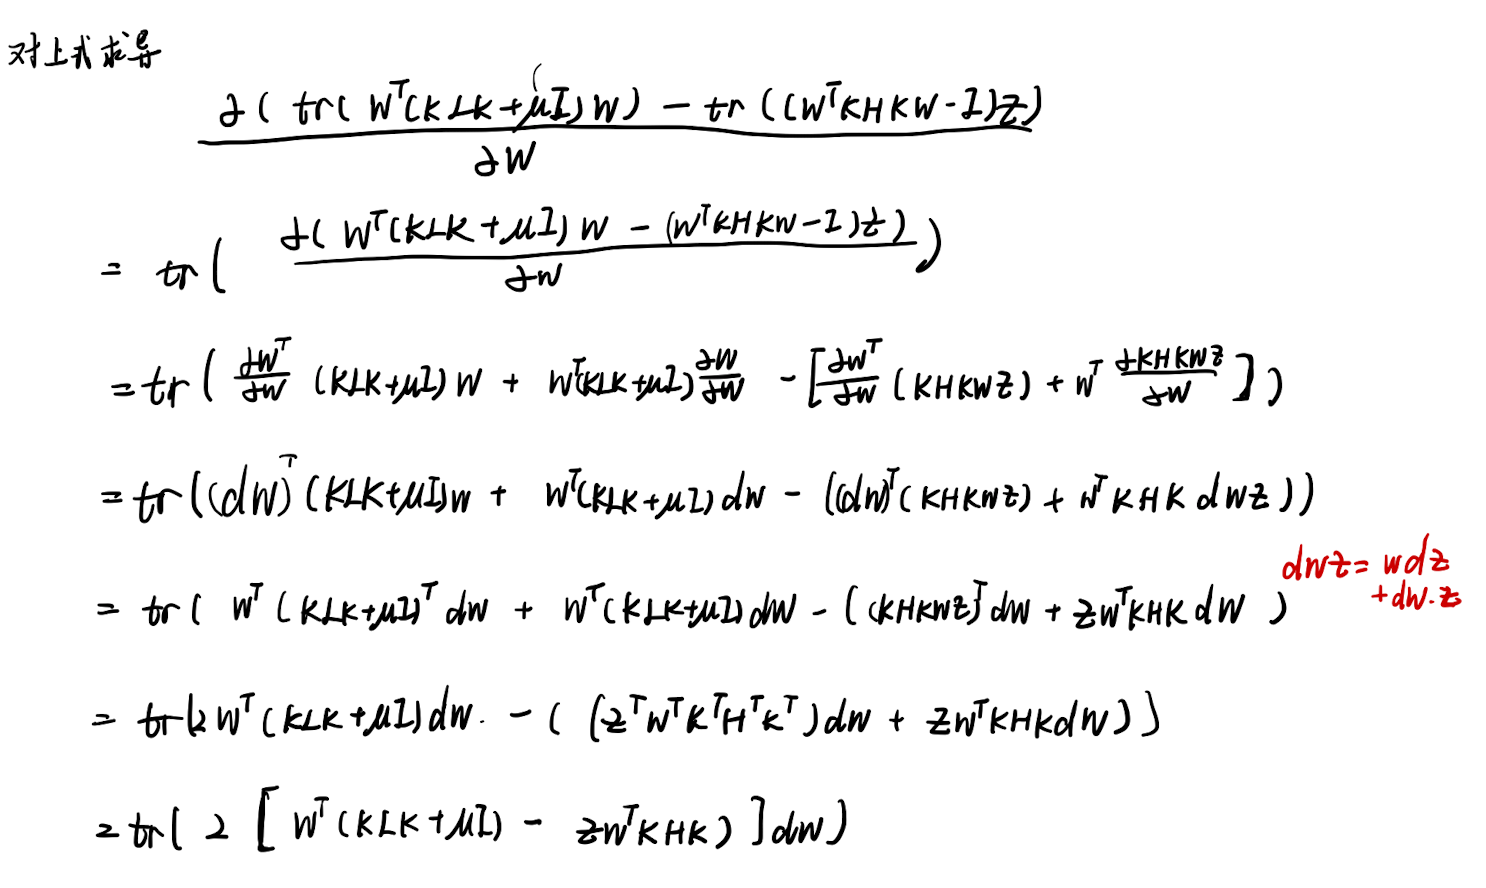 对上式求导
∂( tr( W^T(KLK+μI)W) − tr((W^TKHKW-I)Z)
∂W
= tr( ∂( W^T(KLK+μI)W − (W^TKHKW−I)Z) / ∂W )
= tr( ∂W^T/∂W (KLK+μI)W + W^T(KLK+μI) ∂W/∂W − [ ∂W^T/∂W (KHKWZ) + W^T ∂KHKWZ/∂W ] )
= tr((dW)^T (KLK+μI)W + W^T(KLK+μI)dW − ((dW)^T(KHKWZ) + W^TKHK dWZ))
dWZ = WdZ
+dW.Z
= tr( W^T (KLK+μI)^T dW + W^T(KLK+μI)dW − ((KHKWZ)^T dW + ZW^TKHK dW )
= tr(2 W^T(KLK+μI)dW. − ( (Z^TW^TK^TH^TK^T)dW + ZW^TKHKdW))
= tr( 2 [ W^T(KLK+μI) − ZW^TKHK) ]dW)